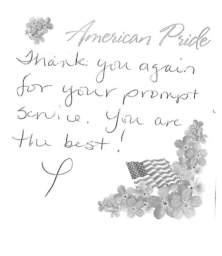 American Pride
Thank you again
for your prompt
service. You are
the best!